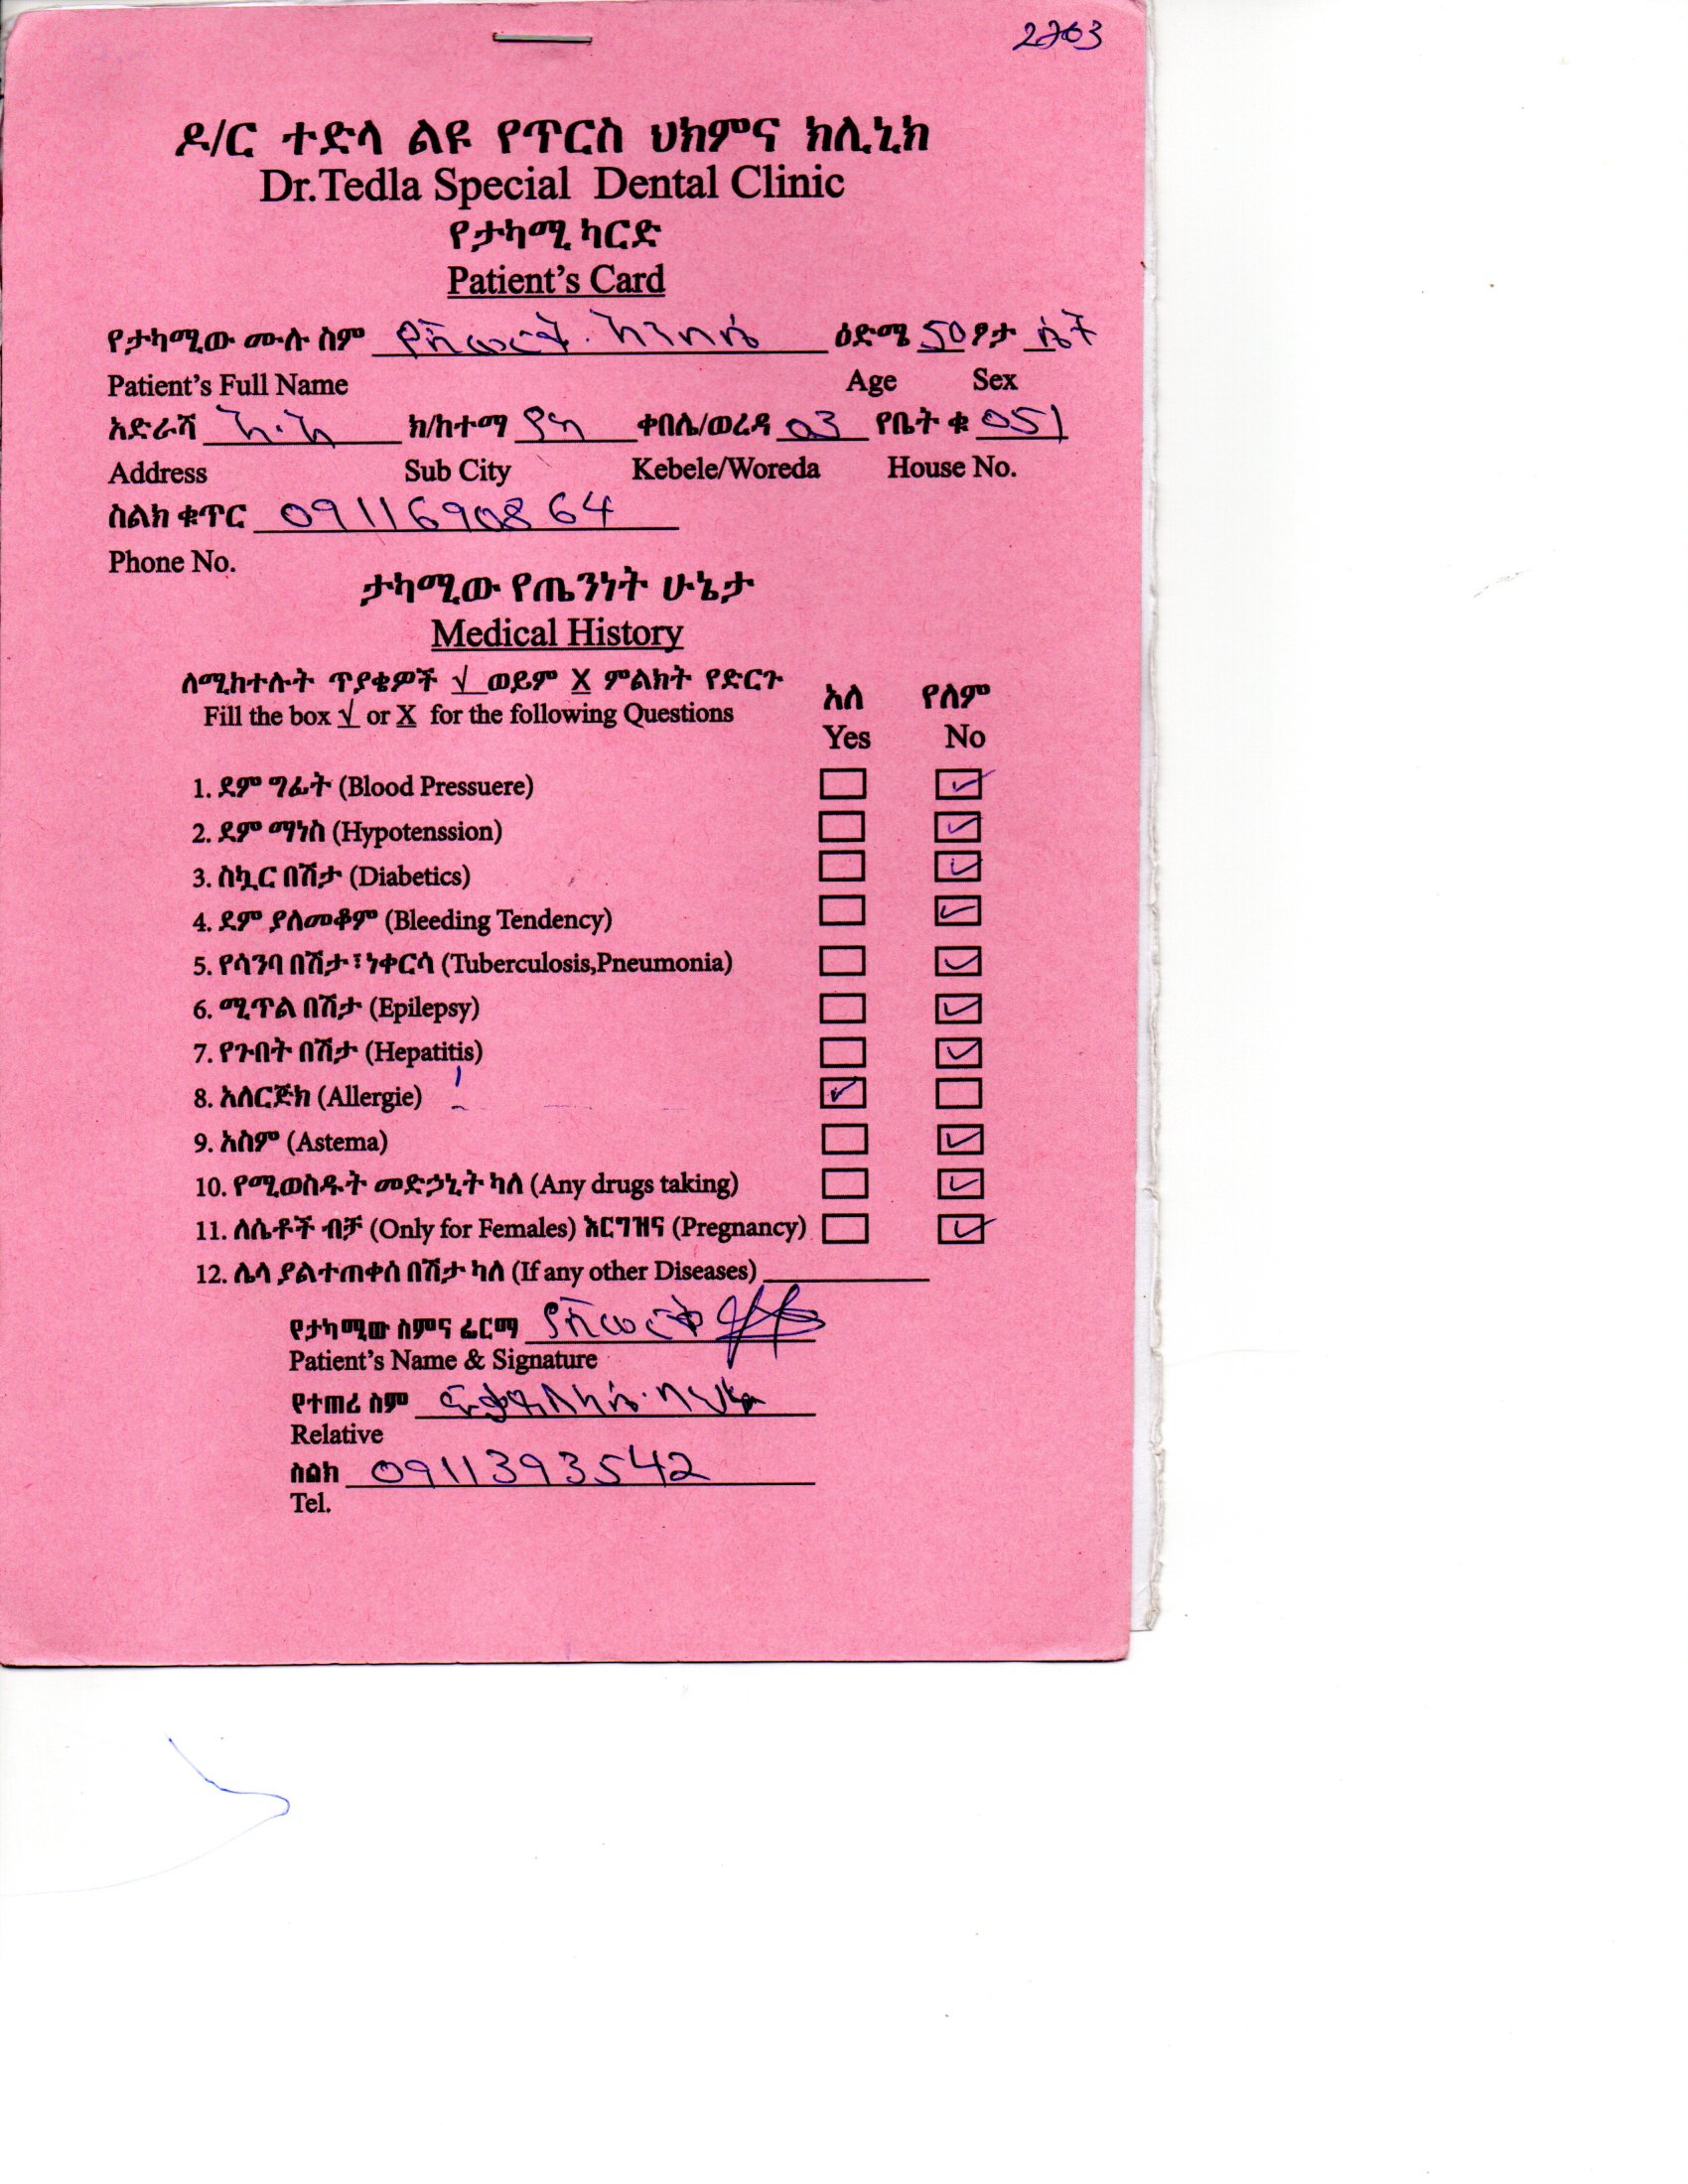 2703
ዶ/ር ተድላ ልዩ የጥርስ ህክምና ክሊኒክ
Dr.Tedla Special Dental Clinic
የታካሚ ካርድ
Patient's Card
የታካሚው ሙሉ ስም የሺወርቅ ዕድሜ 50 ፆታ ሴት
Patient's Full Name Age Sex
አድራሻ አ.አ ክ/ከተማ የካ ቀበሌ/ወረዳ 03 የቤት ቁ 051
Address Sub City Kebele/Woreda House No.
ስልክ ቁጥር 0911690864
Phone No.
ታካሚው የጤንነት ሁኔታ
Medical History
ለሚከተሉት ጥያቄዎች √ ወይም X ምልክት የድርጉ አለ የለም
Fill the box √ or X for the following Questions Yes No
1. ደም ግፊት (Blood Pressuere) ✓
2. ደም ማነስ (Hypotenssion) ✓
3. ስኳር በሽታ (Diabetics) ✓
4. ደም ያለመቆም (Bleeding Tendency) ✓
5. የሳንባ በሽታ፣ነቀርሳ (Tuberculosis,Pneumonia) ✓
6. ሚጥል በሽታ (Epilepsy) ✓
7. የጉበት በሽታ (Hepatitis) ✓
8. አለርጅክ (Allergie) ✓
9. አስም (Astema) ✓
10. የሚወስዱት መድኃኒት ካለ (Any drugs taking) ✓
11. ለሴቶች ብቻ (Only for Females) እርግዝና (Pregnancy) ✓
12. ሌላ ያልተጠቀሰ በሽታ ካለ (If any other Diseases)
የታካሚው ስምና ፊርማ የሺወርቅ
Patient's Name & Signature
የተጠሪ ስም
Relative
ስልክ 0911393542
Tel.